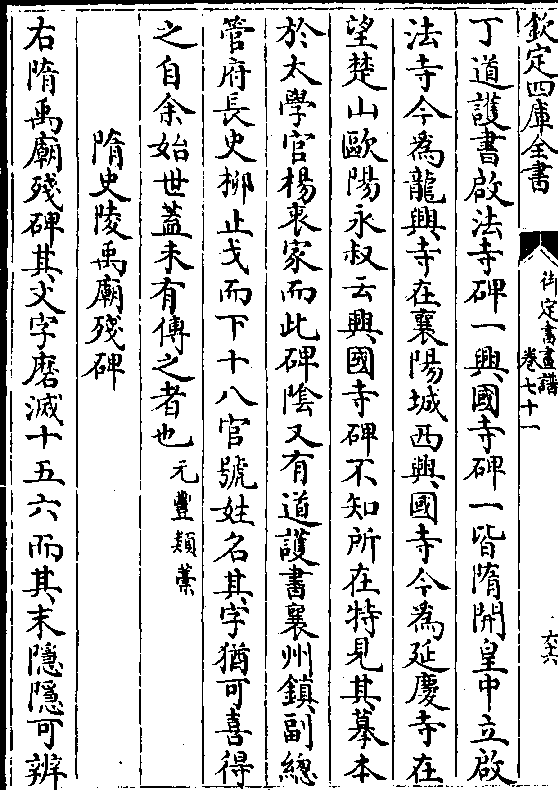 欽定四庫全書
御定書畫譜
卷七十一
六六
丁道護書啟法寺碑一興國寺碑一皆隋開皇中立啟
法寺今為龍興寺在襄陽城西興國寺今為延慶寺在
望楚山歐陽永叔云興國寺碑不知所在特見其摹本
於太學官楊裒家而此碑陰又有道護書襄州鎮副總
管府長史栁止戈而下十八官號姓名其字猶可喜得
之自余始世葢未有傳之者也元豐類藁
隋史陵禹廟殘碑
右隋禹廟殘碑其文字磨滅十五六而其末隱隱可辨